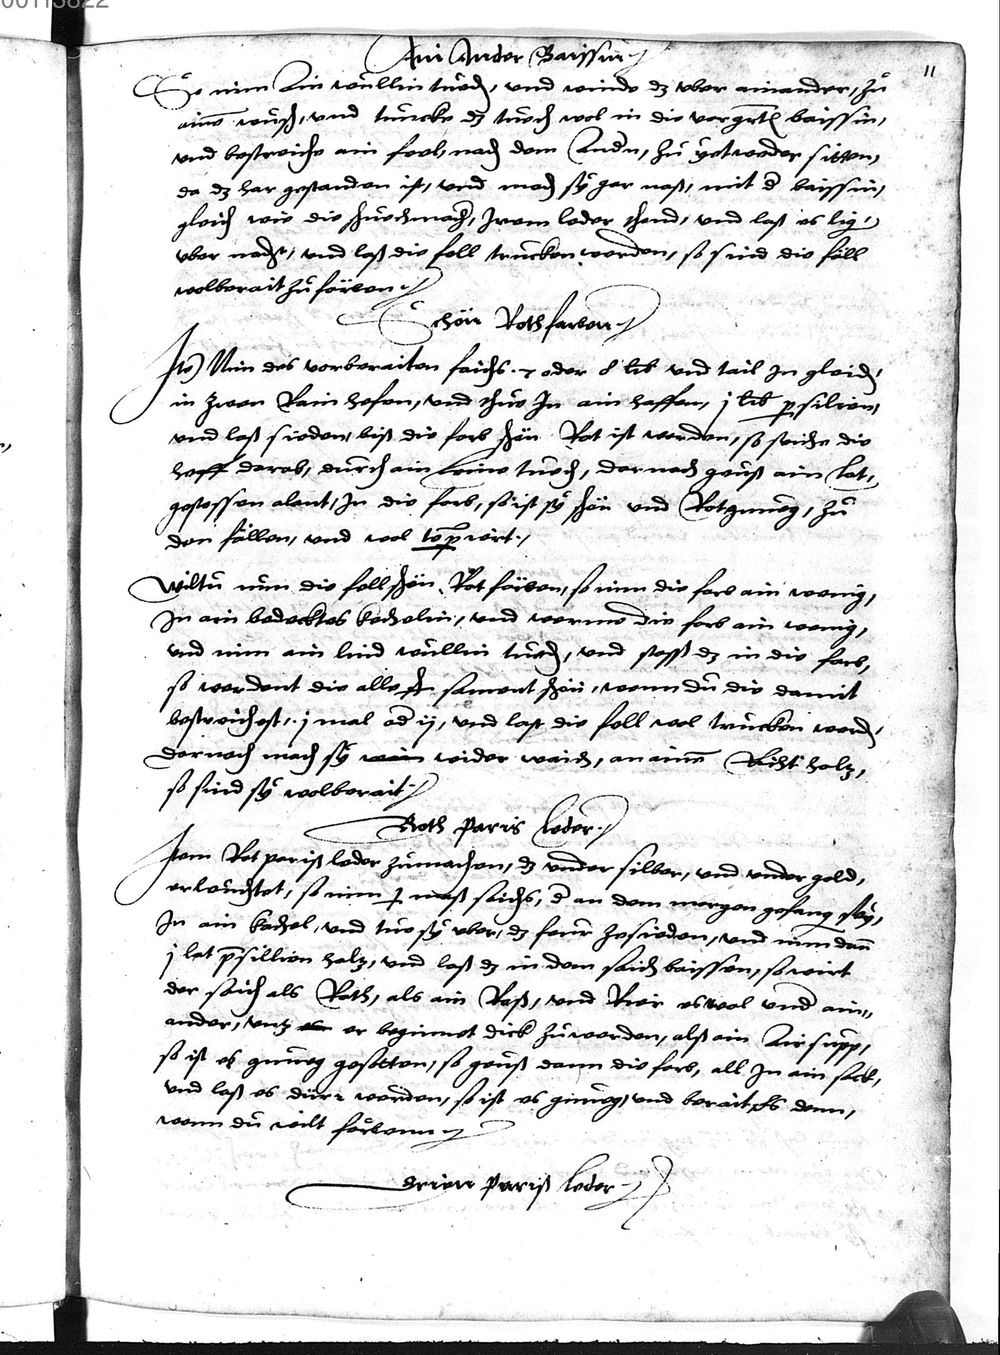 00113822
11
Ain Ander Baissin
So nim Ain wullin tuoch, vnd winde dz vber ainander, zů
ainē wusch, vnd tuncke dz tuoch wol in die vorgeschr baissin,
vnd bestreiche ain feel, nach dem Andn, zů yetweder sitten,
da dz har gestanden ist, vnd mach sy gar naß, mit d baissin,
gleich wie die schuochmacher, Irem leder thend, vnd laß es lig
vber nacht, vnd laß die fell trucken werden, so sind die fäll
wolberait zů färben
Schön Roth farben
Itē Nim des vorberaiten saichs 7 oder 8 lib vnd tail In gleich
in zwen Rain hefen, vnd thuo In ain haffen, j lib prsilien,
vnd laß sieden, biß die farb schön Rot ist worden, so seiche die
heff darab, durch ain Leine tuoch, darnach geuß ain Lot,
gestossen alant, In die farb, so ist sy schön vnd Rotgnuog, zů
den fällen, vnd wol tēpriert
Wiltu nun die fell schön Rot färben, so nim die farb ain wenig,
In ain bedecktes kechelin, vnd werme die farb ain wenig,
vnd nim ain lind wullin tuoch, vnd stoss dz in die farb,
so werdent die alle sament schön, wenn du die damit
bestreichest, j mal od ij, vnd laß die fell wol trucken werd
Darnach mach sy wider waich, an ainē Richt holz,
so sind sy wolberait
Roth Paris Leder
Item Rot pariß leder zumachen, dz vnder silber, vnd vnder gold,
erleuchtet, so nim j maß saichs, d an dem morgen gefangen sey,
In ain kachel, vnd tuo sy vber, dz feur zesieden, vnd nim dan̄
j lot prsillien holz, vnd laß dz in dem saich baissen, so wirt
der saich als Roth, als ain Roß, vnd Rier es wol vnd ain„
ander, vntz er beginnet dick zů werden, alß ain Air supp,
so ist es gnuog gesotten, so geuß dann die farb, all In ain sack,
vnd laß es dürr werden, so ist es gnuog, vnd berait es denn,
wenn du wilt färbenn
Grien Pariß Leder